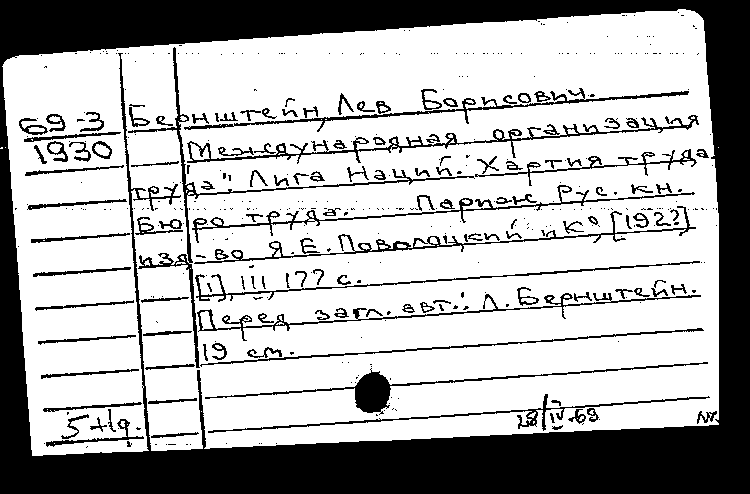 69-3
1930
Бернштейн, Лев Борисович.
Международная организация
труда: Лига Наций. Хартия труда.
Бюро труда. Париж, Рус. кн.
изд-во Я.Е. Поволоцкий и К⁰, [192?]
[1], III, 177 с.
Перед загл. авт.: Л. Бернштейн.
19 см.
28/IV-69